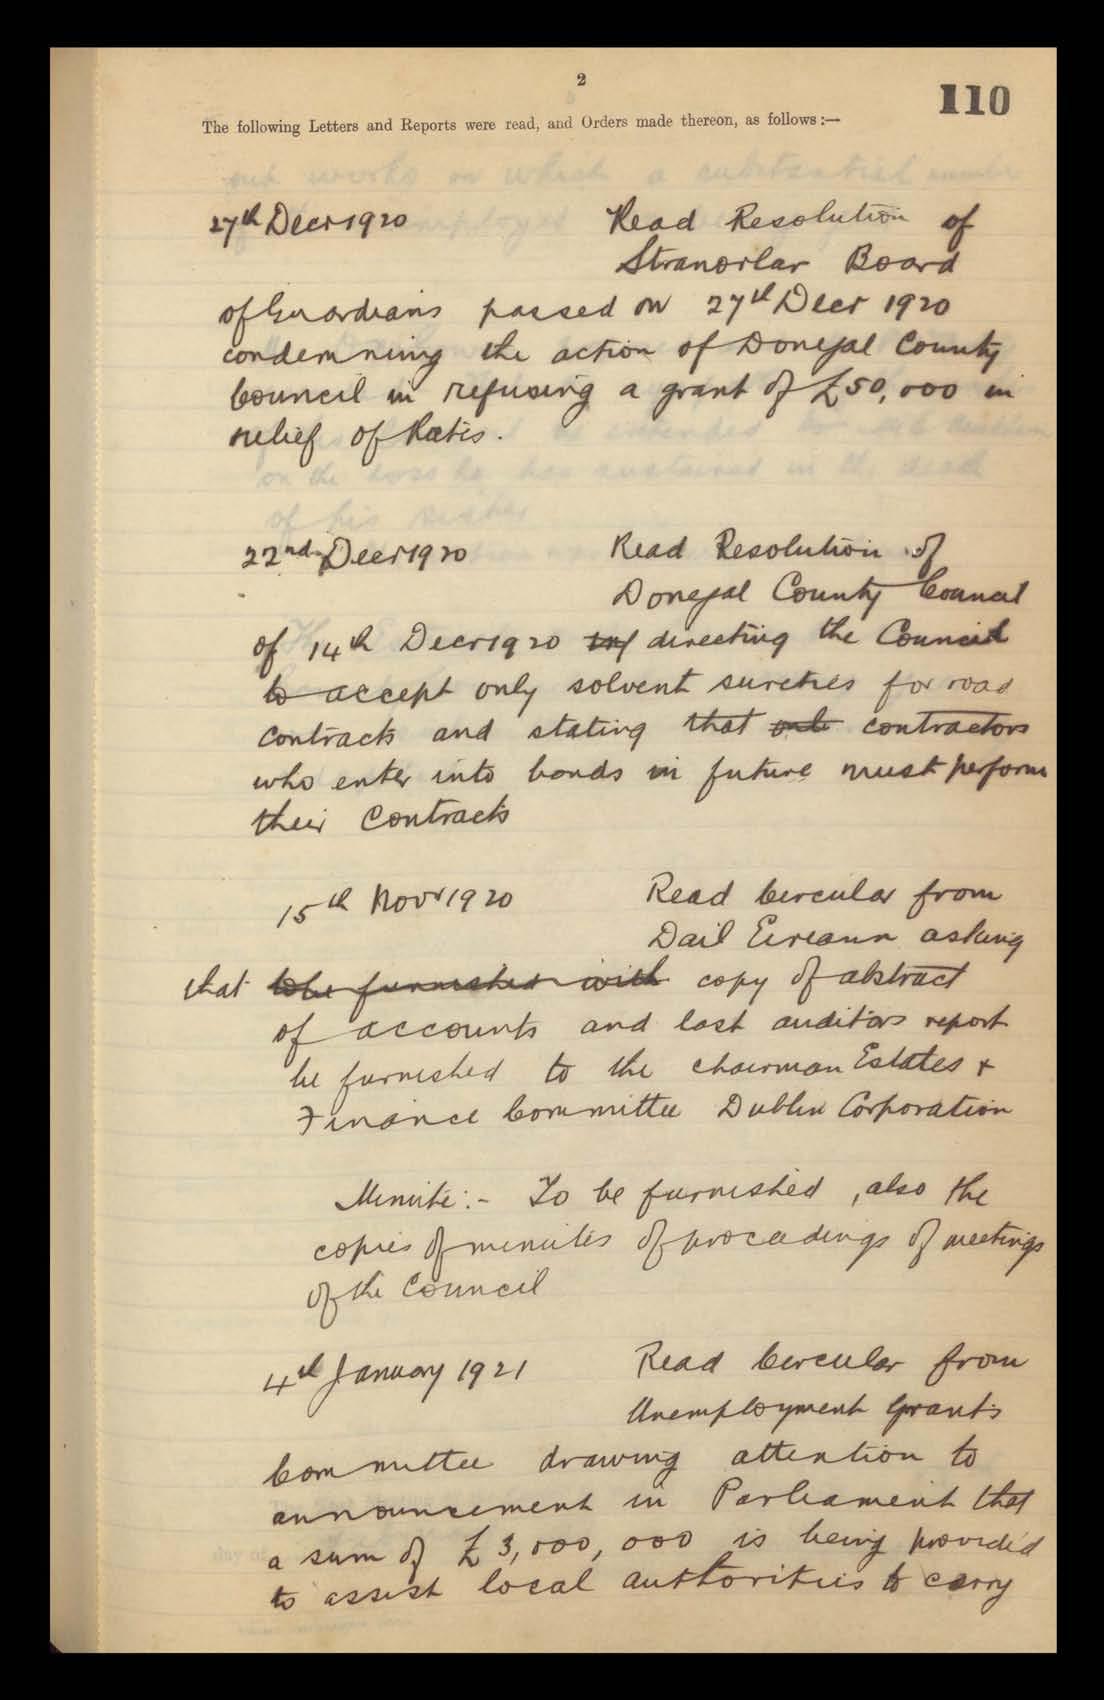 2
110
The following Letters and Reports were read, and Orders made thereon, as follows :—
27th Decr 1920 Read Resolution of
Stranorlar Board
of Guardians passed on 27th Decr 1920
condemning the action of Donegal County
Council in refusing a grant of £50,000 in
relief of Rates.
22nd Decr 1920 Read Resolution of
Donegal County Council
of 14th Decr 1920 directing the Council
to accept only solvent sureties for road
contracts and stating that only contractors
who enter into bonds in future must perform
their Contracts
15th Novr 1920 Read Circular from
Dail Eireann asking
that to be furnished with copy of abstract
of accounts and last auditors report
be furnished to the chairman Estates +
Finance Committee Dublin Corporation
Minute :- To be furnished, also the
copies of minutes of proceedings of meetings
of the Council
4th January 1921 Read Circular from
Unemployment Grants
Committee drawing attention to
announcement in Parliament that
a sum of £3,000,000 is being provided
to assist local authorities to carry